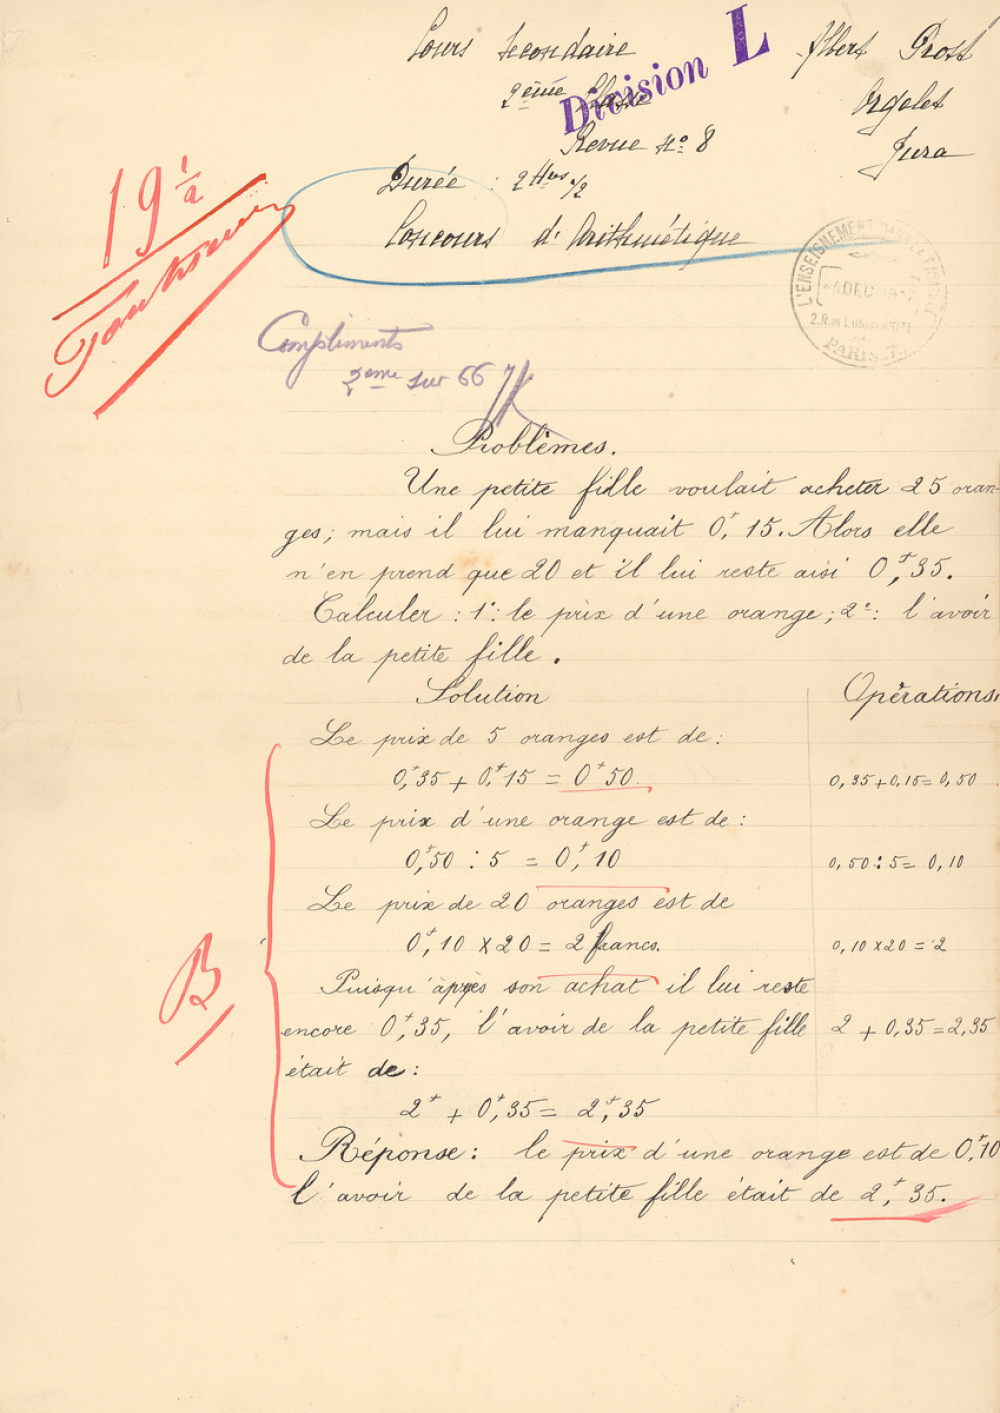 Cours Secondaire
Albert Prost
Division L
2ème Classe
Orgelet
Revue No 8
Jura
Durée : 2 Hres 1/2
Concours d'Arithmétique
19 1/2
L'ENSEIGNEMENT DANS LA FAMILLE
4 DEC
2.R. de L'UNIVERSITÉ
PARIS.7e
Compliments
2eme sur 66
Problèmes.
Une petite fille voulait acheter 25 oran-
ges; mais il lui manquait 0f,15. Alors elle
n'en prend que 20 et il lui reste aisi 0f,35.
Calculer : 1°: le prix d'une orange; 2e: l'avoir
de la petite fille.
Solution
Opérations.
Le prix de 5 oranges est de:
0f,35 + 0f,15 = 0f50.
0,35+0,15=0,50
Le prix d'une orange est de:
0f,50 : 5 = 0f,10
0,50:5= 0,10
Le prix de 20 oranges est de
0f,10 x 20 = 2 francs.
0,10 x20 = 2
Puisqu'après son achat il lui reste
encore 0f,35, l'avoir de la petite fille
2 + 0,35=2,35
était de:
2f + 0f,35= 2f,35
B
Réponse: le prix d'une orange est de 0f,10
l'avoir de la petite fille était de 2f,35.